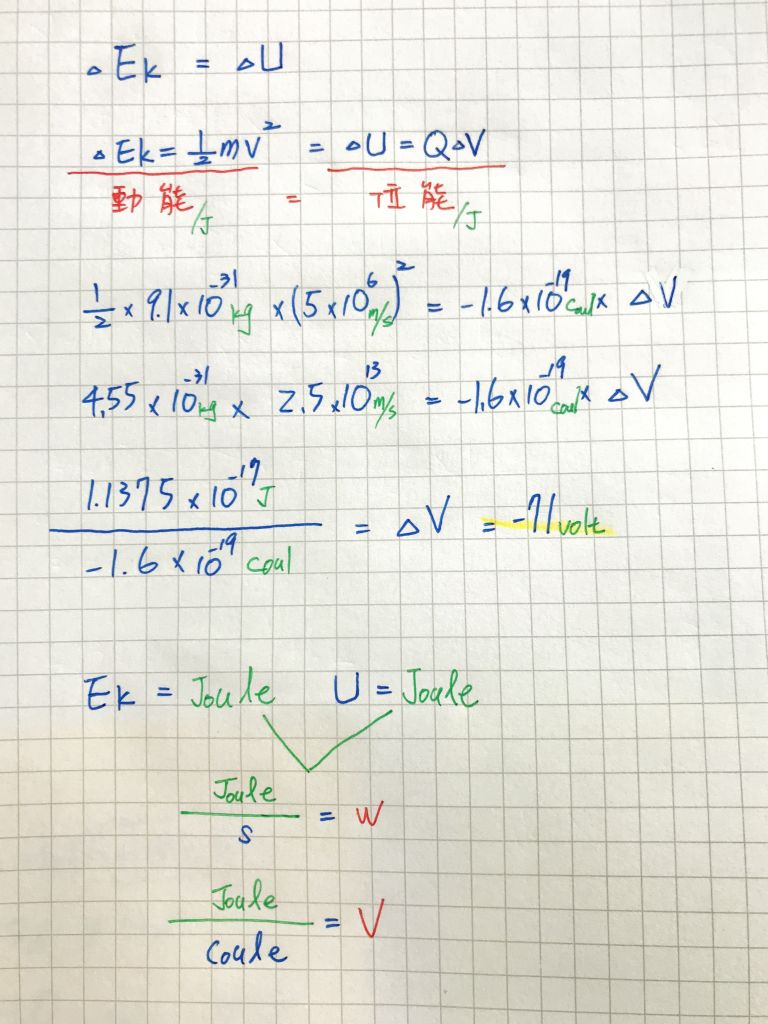 △Ek = △U
△Ek = ½mV² = △U = Q△V
動能/J = 位能/J
½ × 9.1×10⁻³¹kg × (5×10⁶m/s)² = -1.6×10⁻¹⁹coul × △V
4.55 × 10⁻³¹kg × 2.5×10¹³m/s = -1.6×10⁻¹⁹coul × △V
1.1375 × 10⁻¹⁷J
-1.6 × 10⁻¹⁹ coul = △V = -71volt
Ek = Joule U = Joule
Joule
s = W
Joule
Coule = V